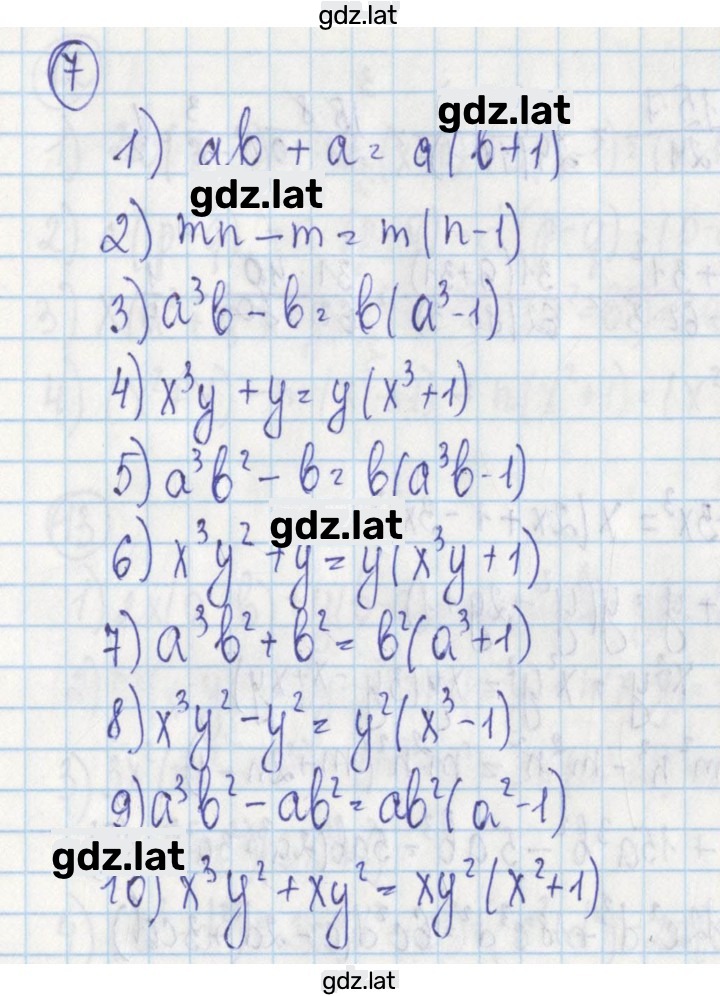 gdz.lat
7
gdz.lat
1) ab + a = a(b+1)
gdz.lat
2) mn - m = m(n-1)
3) a³b - b = b(a³-1)
4) x³y + y = y(x³+1)
5) a³b² - b = b(a³b-1)
gdz.lat
6) x³y² + y = y(x³y+1)
7) a³b² + b² = b²(a³+1)
8) x³y² - y² = y²(x³-1)
9) a³b² - ab² = ab²(a²-1)
gdz.lat
10) x³y² + xy² = xy²(x²+1)
gdz.lat